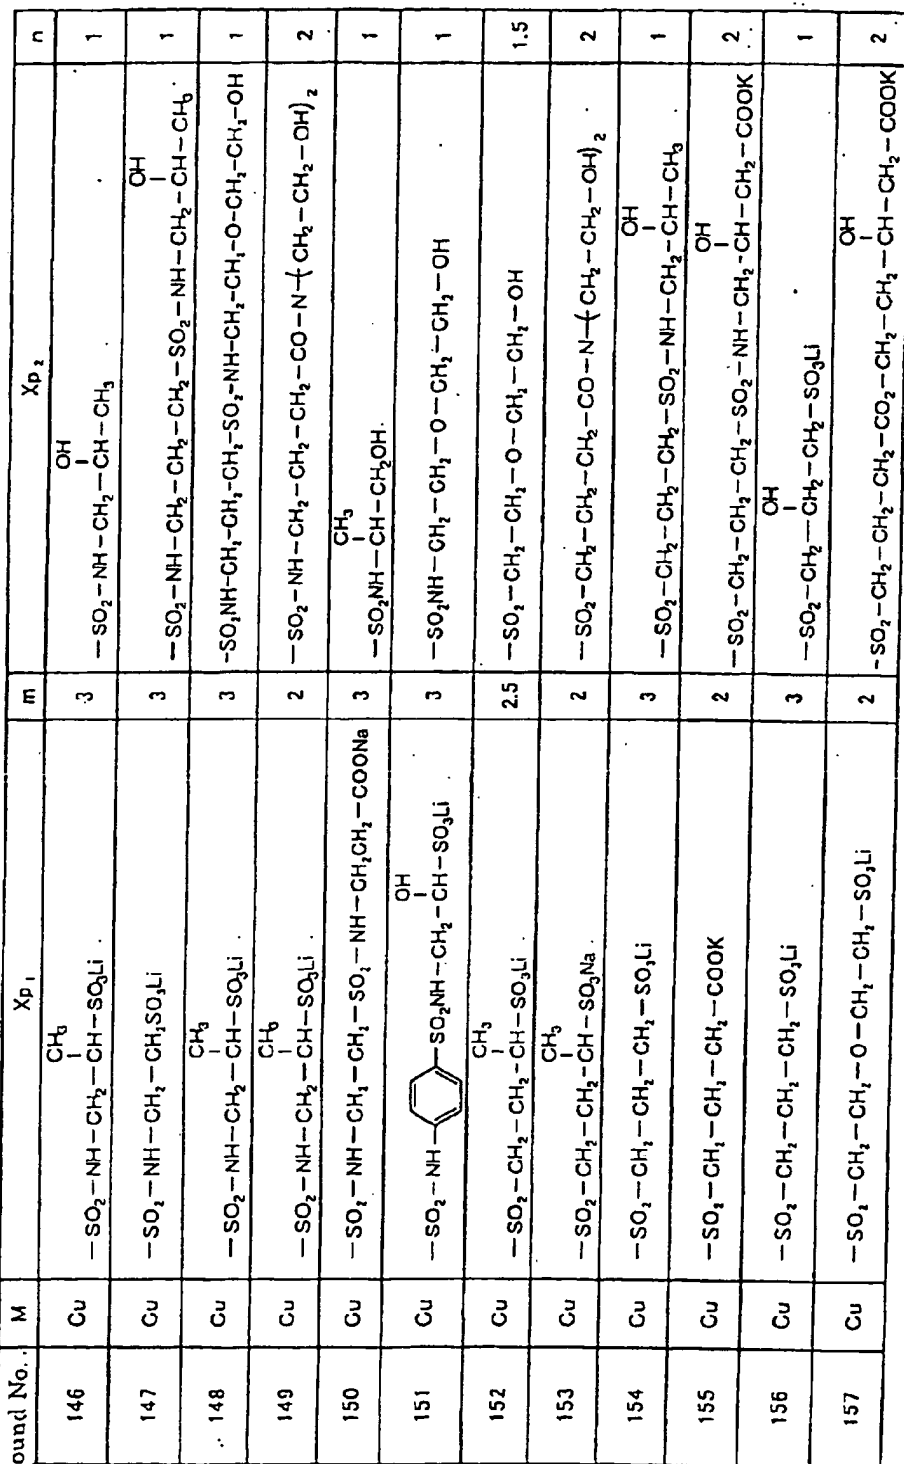 ound No. M Xp₁ m Xp₂ n
CH₃ OH
146 Cu —SO₂—NH—CH₂—CH—SO₃Li 3 —SO₂—NH—CH₂—CH—CH₃ 1
OH
147 Cu —SO₂—NH—CH₂—CH₂SO₃Li 3 —SO₂—NH—CH₂—CH₂—CH₂—SO₂—NH—CH₂—CH—CH₃ 1
CH₃
148 Cu —SO₂—NH—CH₂—CH—SO₃Li 3 -SO₂NH-CH₂-CH₂-CH₂-SO₂-NH-CH₂-CH₂-O-CH₂-CH₂-OH 1
CH₃
149 Cu —SO₂—NH—CH₂—CH—SO₃Li 2 —SO₂—NH—CH₂—CH₂—CH₂—CO—N—(CH₂—CH₂—OH)₂ 2
CH₃
150 Cu —SO₂—NH—CH₂—CH₂—SO₂—NH—CH₂CH₂—COONa 3 —SO₂NH—CH—CH₂OH 1
OH
151 Cu —SO₂—NH— —SO₂NH—CH₂—CH—SO₃Li 3 —SO₂NH—CH₂—CH₂—O—CH₂—CH₂—OH 1
CH₃
152 Cu —SO₂—CH₂—CH₂—CH—SO₃Li 2.5 —SO₂—CH₂—CH₂—O—CH₂—CH₂—OH 1.5
CH₃
153 Cu —SO₂—CH₂—CH₂—CH—SO₃Na 2 —SO₂—CH₂—CH₂—CH₂—CO—N—(CH₂—CH₂—OH)₂ 2
OH
154 Cu —SO₂—CH₂—CH₂—CH₂—SO₃Li 3 —SO₂—CH₂—CH₂—CH₂—SO₂—NH—CH₂—CH—CH₃ 1
OH
155 Cu —SO₂—CH₂—CH₂—CH₂—COOK 2 —SO₂—CH₂—CH₂—CH₂—SO₂—NH—CH₂—CH—CH₂—COOK 2
OH
156 Cu —SO₂—CH₂—CH₂—CH₂—SO₃Li 3 —SO₂—CH₂—CH₂—CH₂—SO₃Li 1
OH
157 Cu —SO₂—CH₂—CH₂—O—CH₂—CH₂—SO₃Li 2 -SO₂—CH₂—CH₂—CH₂—CO₂—CH₂—CH₂—CH—CH₂—COOK 2